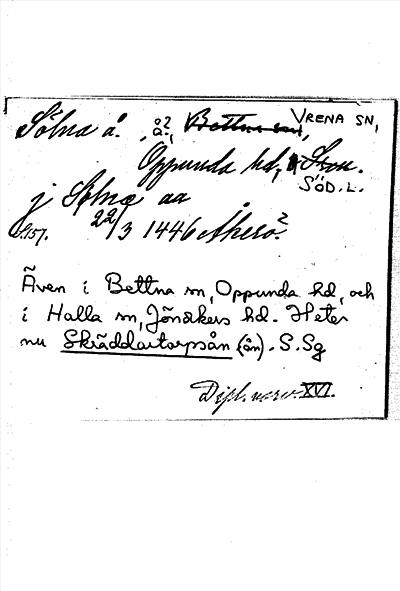 Sölna å. å?, Bettna sn, VRENA SN,
å.,
Oppunda hd,
SÖD.L.
j Sølnæ aa
22/3 1446 Åkerö?
Även i Bettna sn, Oppunda hd, och
i Halla sn, Jönåkers hd. Heter
nu Skräddartorpsån (ån). S.Sg
Dipl. norv. XVI.